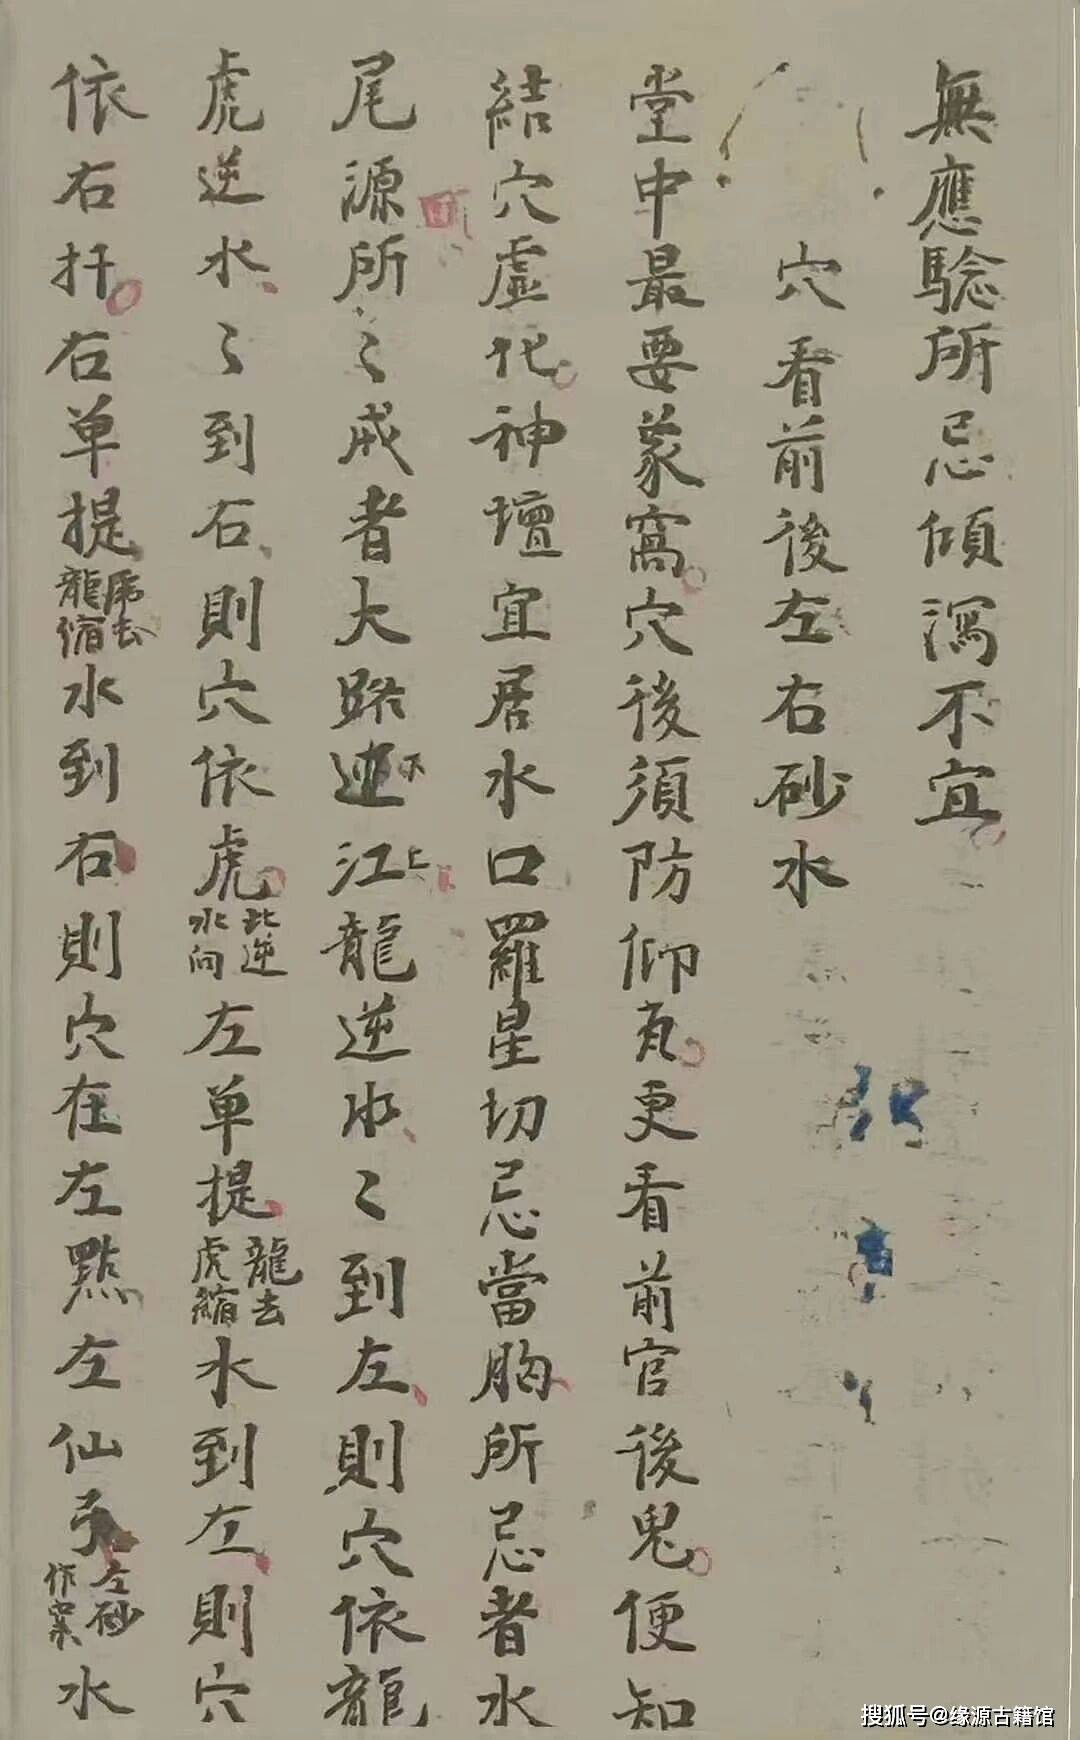 無應騐所忌傾瀉不宜
穴看前後左右砂水
堂中最要蒙窩穴後須防仰瓦更看前官後鬼便知
結穴虛花神壇宜居水口羅星切忌當胸所忌者水
尾源所〻戒者大路迹下江上龍逆水〻到左則穴依龍
虎逆水〻到右則穴依虎此逆水向左单提龍去虎縮水到左則穴
依右扦右单提虎去龍縮水到右則穴在左點左仙弓左砂作案水
搜狐号@缘源古籍馆